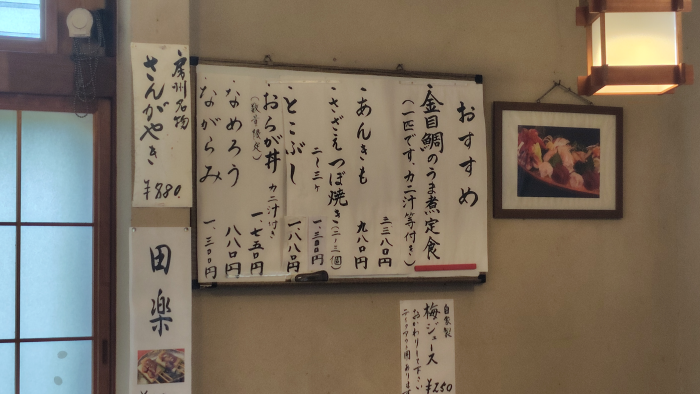 おすすめ
・金目鯛のうま煮定食
（一匹です、カニ汁等付き）
三三八〇円
・あんきも
九八〇円
・さざえつぼ焼き（二〜三個）
二〜三ヶ
一、三〇〇円
・とこぶし
一、八八〇円
・おらが丼 カニ汁付き
（数量限定）
一、七五〇円
・なめろう
八八〇円
・ながらみ
一、三〇〇円
房州名物
さんがやき
¥880
田楽
自家製
梅ジュース
¥250
おかわりして下さい